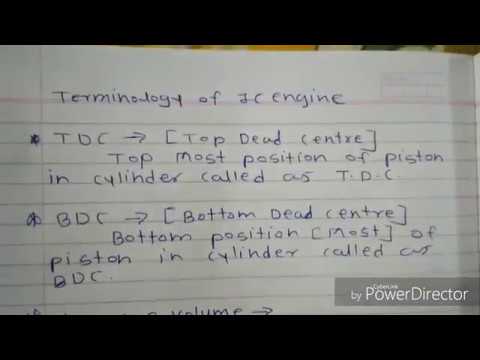 Terminology of IC engine
* TDC → [Top Dead Centre]
Top Most position of piston
in cylinder called as T.D.C.
* BDC → [Bottom Dead Centre]
Bottom position [Most] of
piston in cylinder called as
BDC.
volume →
CyberLink
by PowerDirector